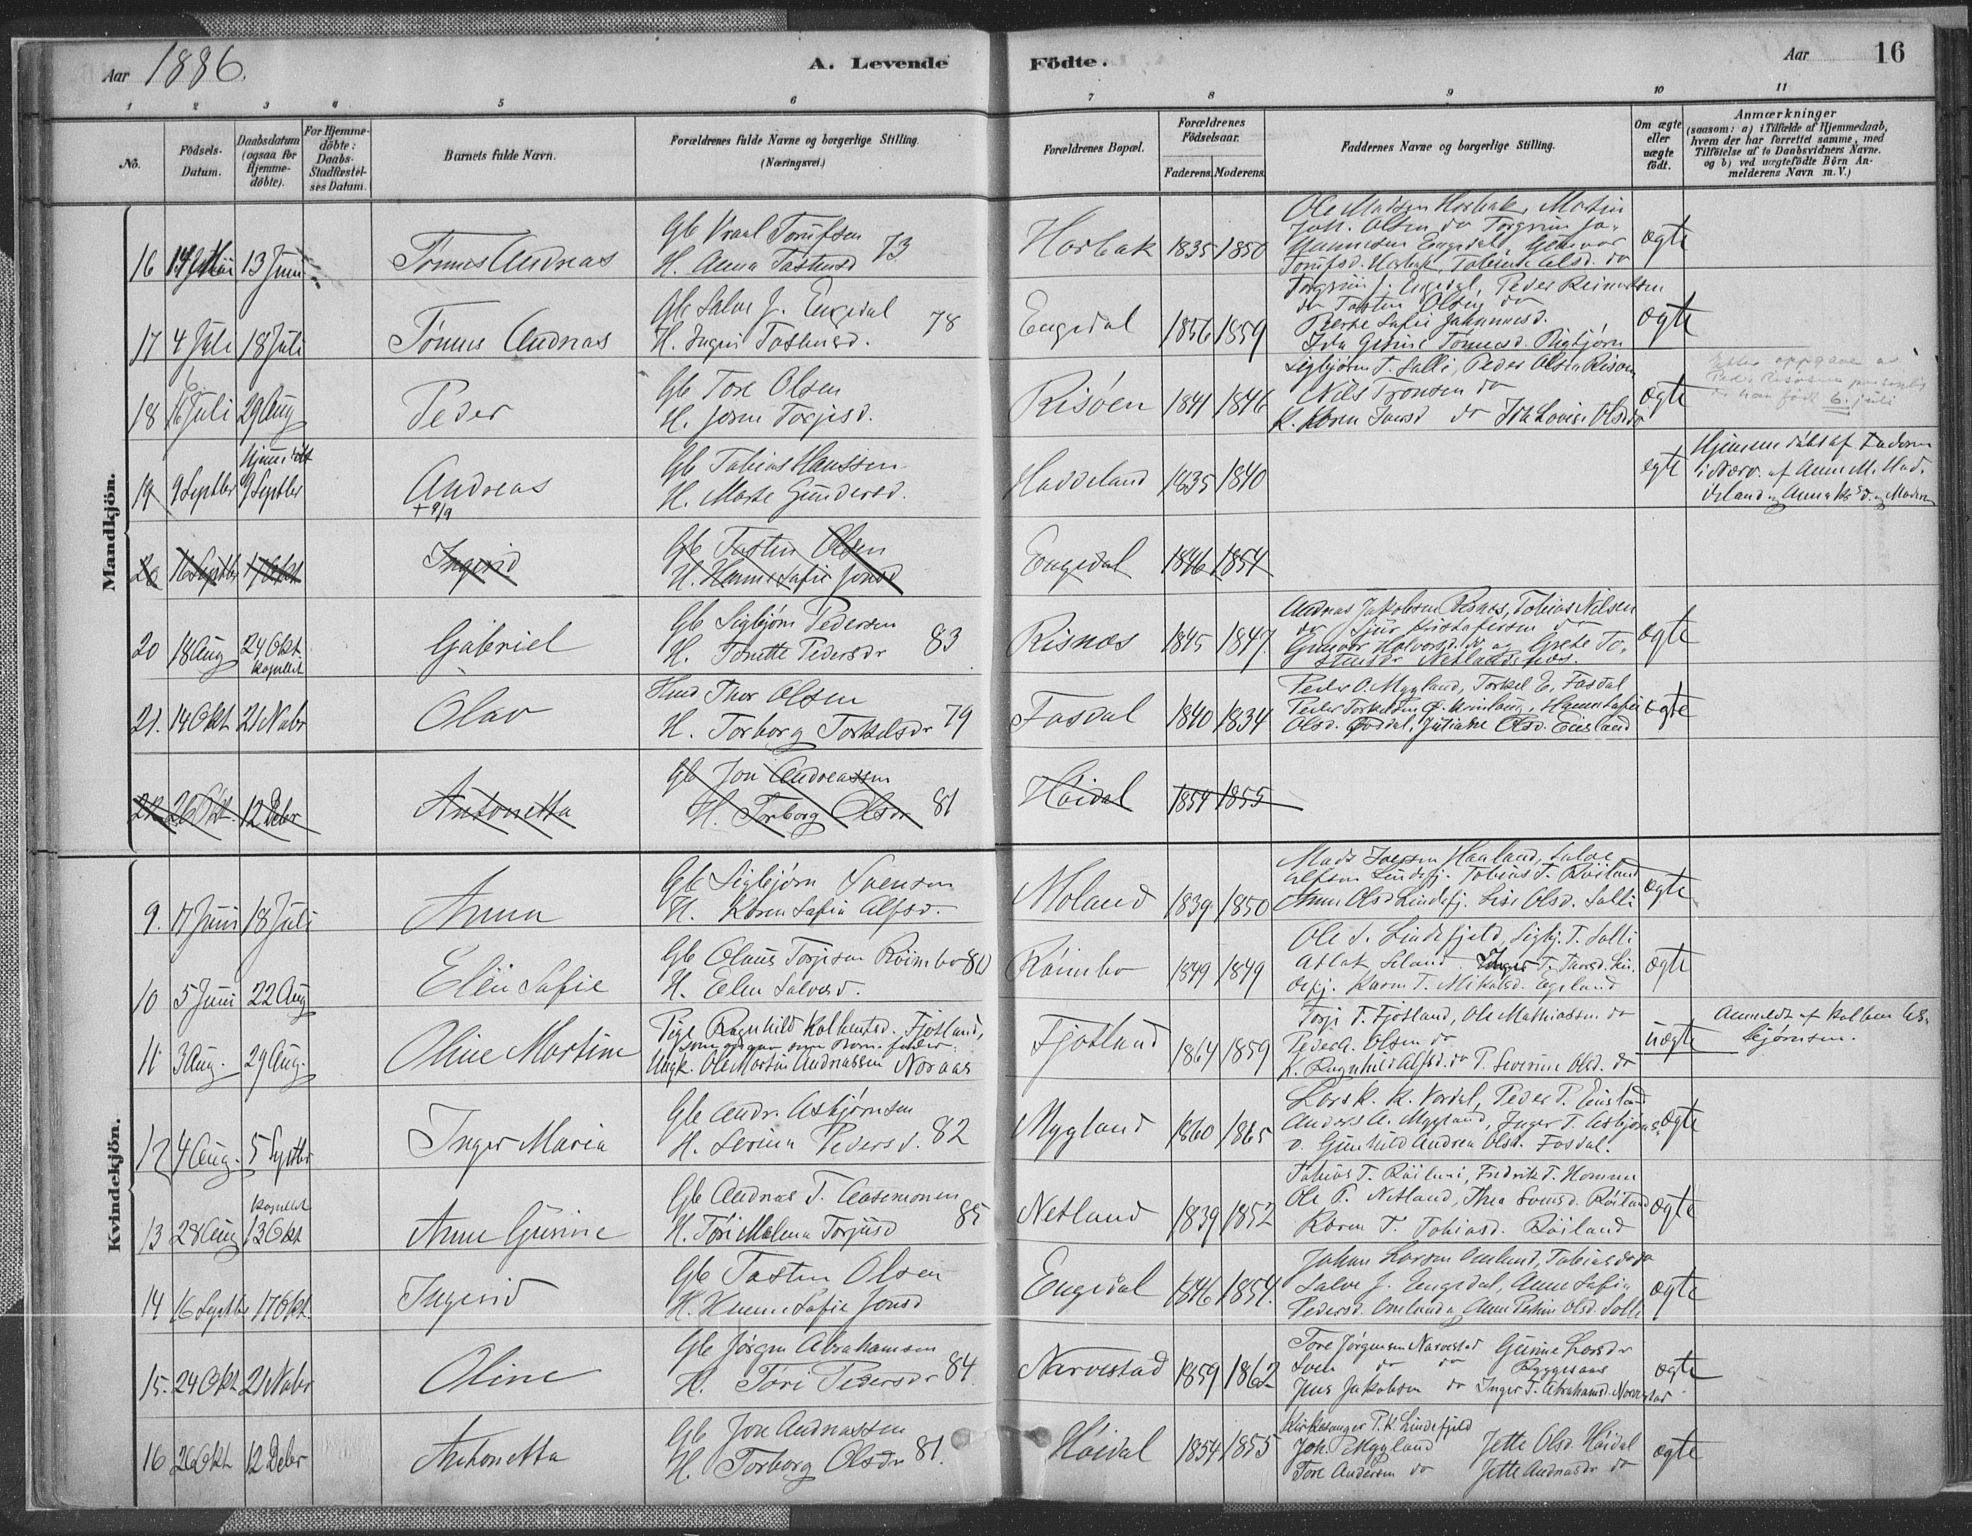 Aar 1886.
A. Levende
Födte.
Aar
16
1 2 3 4 5 6 7 8 9 10 11
No.
Födsels-
Datum.
Daabsdatum
(ogsaa for
Hjemme-
döbte).
For Hjemme-
döbte:
Daabs-
Stadfæstel-
ses Datum.
Barnets fulde Navn.
Forældrenes fulde Navne og borgerlige Stilling.
(Næringsvei.)
Forældrenes Bopæl.
Forældrenes
Födselsaar.
Faderens. Moderens.
Faddernes Navne og borgerlige Stilling.
Om ægte
eller
uægte
födt.
Anmærkninger
(saasom: a) i Tilfælde af Hjemmedaab,
hvem der har forrettet samme, med
Tilföielse af to Daabsvidners Navne.
og b) ved uægtefödte Börn An-
melderens Navn m. V.)
Mandkjön.
16 14 Mai 13 Juni Tønnes Andreas
73
H. Anna
Horbak 1835 1850
Ole Madsen Horbak, Martin
Joh. Olsen do
Engedal, Gunvor
ægte
17 4 Juli 18 Juli Tønnes Andreas
Gb Salve J. Engedal 78
H. Inger
Engedal 1856 1859
Torgrim J. Engedal, Peder
do Tosten Olsen do
Berte Safie Johannesd.
ægte
18 Juli 29 Aug Peder
Gb Tore Olsen
H. Joren Torjesd.
Risøen 1841 1846
Sigbjørn T. Salli, Peder Olsen Risøen
Nils Tronsen do
K. Karen do Ida Lovise Olsd do
ægte
Efter oppgave av
er han født 6. juli
19 9 Septbr Hjemmedøbt
9 Septbr
Andreas
+ 9/9
Gb Tobias Hanssen
H. Marte Gundersd.
Haddeland 1835 1840
egte
Hjemmedøbt af Faderen
i Nærv. af Anne M. Had-
20 16 Septbr 17 Okt Ingerid
Gb Tosten Olsen
H. Hanne Safie Jonsd
Engedal 1846 1854
20 18 Aug 24 Okt
Gabriel
Gb Sigbjørn Pedersen 83
H. Tonette Pedersdr
Risnæs 1845 1847.
Andreas Jakobsen Risnæs, Tobias Nilsen
do Sjur Kristofersen do
Gunvor Halvorsd. do og Grete To-
stensdr Netlandsnæs.
ægte
21. 14 Okt. 21 Novbr Olav
Thor Olsen
H. Torborg Torkelsdr 79
Fosdal 1840 1834
Peder O. Mygland, Torkel E. Fosdal
Hanne Safie
Olsd. Fosdal, Juliane Olsd. Eiesland
ægte
22. 26 Okt. 12 Debr Antonetta
Gb Jon Andreassen
H. Torborg Olsdr 81
Høidal 1854 1855
Kvindekjön.
9. 17 Juni 18 Juli Anna
Gb Sigbjørn Svensen
H. Karen Safie Alfsd.
Moland 1839. 1850
Mads Iversen Haaland, Salve
Alfsen Lindefj. Tobias T. Røiland
Anne Olsd Lindefj. Lise Olsd. Salli
ægte
10 5 Juni 22 Aug Elen Safie
Gb Olaus Torjesen Røimbo 80
H. Elen Salvesd.
Røimbo 1849 1849
Ole S. Lindefjeld, Sigbj. T. Salli
Karen T. Mikalsd. Egeland
ægte
11 3 Aug. 29 Aug. Oline Martine
Pige Ragnhild Kolbentsd. Fjotland,
som opgav som Barnefader
Ungk. Ole Martin Andreassen Noraas
Fjotland 1864 1859
Torje T. Fjotland, Ole Mathiassen do
Peder A. Olsen do
K. Ragnhild Alfsd. do P. Severine Olsd. do
uægte
Anmeldt af Kolben As-
bjørnsen.
12 4 Aug. 5 Septbr Inger Maria
Gb Andr. Asbjørnsen
H. Serina Pedersd. 82
Mygland 1860 1865
Lars K. K. Vordal, Peder P. Eiesland
Anders A. Mygland, Inger T. Asbjørns-
d. Gunhild Andrea Olsd. Fosdal.
ægte
13 28 Aug 13 Okt Anne Gurine
Gb Andreas T. Aasemonen
H. Tøri Malena Torjusd 85
Netland 1839 1852
Tobias T. Røiland, Fredrik T. Homme
Ole P. Netland, Thea Svensd. Røiland
Karen T. Tobiasd. Røiland
ægte
14 16 Septbr 17 Okt. Ingerid
Gb Tosten Olsen
H. Hanne Safie Jonsd
Engedal 1846 1854.
Johan Larsen Omland, Tobias do do
Salve J. Engedal, Anne Safie
Pedersd. Omland og Anne Petrine Olsd Salli
ægte
15. 24 Okt. 21 Novbr Oline
Gb Jørgen Abrahamsen
H. Tøri Pedersdr 84.
Narvestad 1859 1862
Tore Jørgensen Narvestad Gurine Larsdr
Sven do do Ryggesaas
Jens Jakobsen do Inger T. Abrahamsd. Narvestad
ægte
16 26 Okt 12 Debr Antonetta
Gb Jon Andreassen
H. Torborg Olsdr 81.
Høidal 1854 1855
Kirkesanger P. K. Lindefjeld
Joh. P. Mygland Jette Olsd Høidal
Tore Andersen do Jette Andreasdr do
ægte